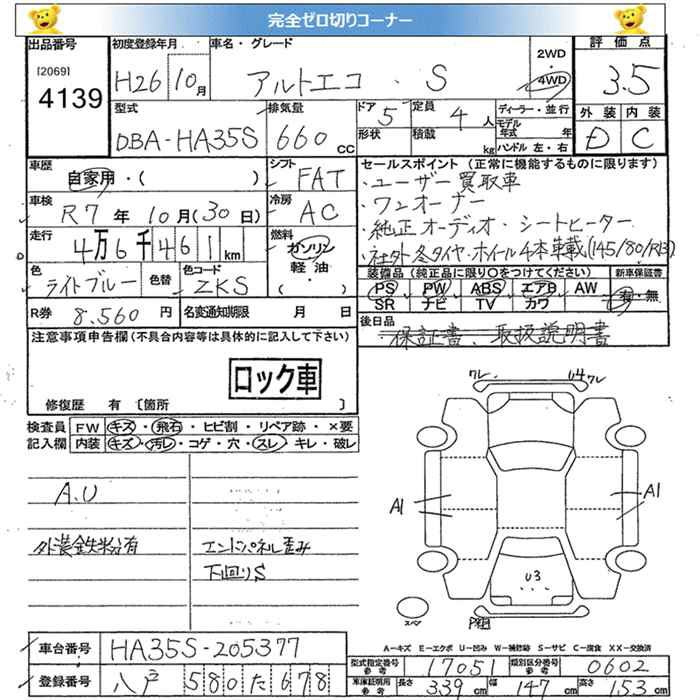 完全ゼロ切りコーナー
出品番号
[2069]
4139
初度登録年月
H26 10月
車名・グレード
アルトエコ・S
2WD
・
4WD
評価点
3.5
外装 内装
D C
型式
DBA-HA35S
排気量
660 CC
ドア
5
定員
4人
形状
積載
kg
ディーラー・並行
モデル年式 年
ハンドル 左・右
車歴
自家用・( )
シフト
FAT
車検
R7年10月(30日)
冷房
AC
走行
4万6千461km
燃料
ガソリン
軽油
・( )
色
ライトブルー
色替
色コード
ZKS
R券 8.560円
名変通知期限 月 日
セールスポイント(正常に機能するものに限ります)
・ユーザー買取車
・ワンオーナー
・純正オーディオ・シートヒーター
・社外冬タイヤ・ホイール4本車載(145/80/R13)
装備品(純正品に限り○をつけてください)
新車保証書
PS PW ABS エアB AW
SR ナビ TV カワ
有・無
後日品
保証書、取扱説明書
注意事項申告欄(不具合内容等は具体的に記入して下さい)
ロック車
修復歴 有〔箇所 〕
検査員記入欄
FW キズ・飛石・ヒビ割・リペア跡・×要
内装 キズ・汚レ・コゲ・穴・スレ・キレ・破レ
A.U
外装鉄粉有
エンドパネル歪み
下回りS
ワレ
U4ワレ
A1
A1
U3
スペア
A=キズ E=エクボ U=凹み W=補修跡 S=サビ C=腐食 XX=交換済
車台番号
HA35S-205377
登録番号
八戸 580 た 678
型式指定番号 参考
17051
類別区分番号 参考
0602
車庫証明用 参考
長さ 339cm
幅 147cm
高さ 153cm